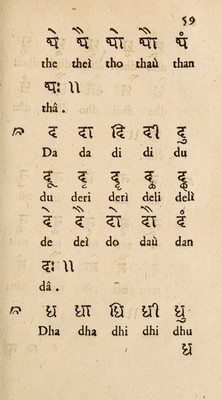 59
थे थै थो थौ थं
the theì tho thaù than
थः ॥
thâ .
द दा दि दी दु
Da da di di du
दू दृ दॄ दॢ दॣ
du deri derì deli delì
दे दै दो दौ दं
de deì do daù dan
दः ॥
dâ .
ध धा धि धी धु
Dha dha dhi dhi dhu
ध